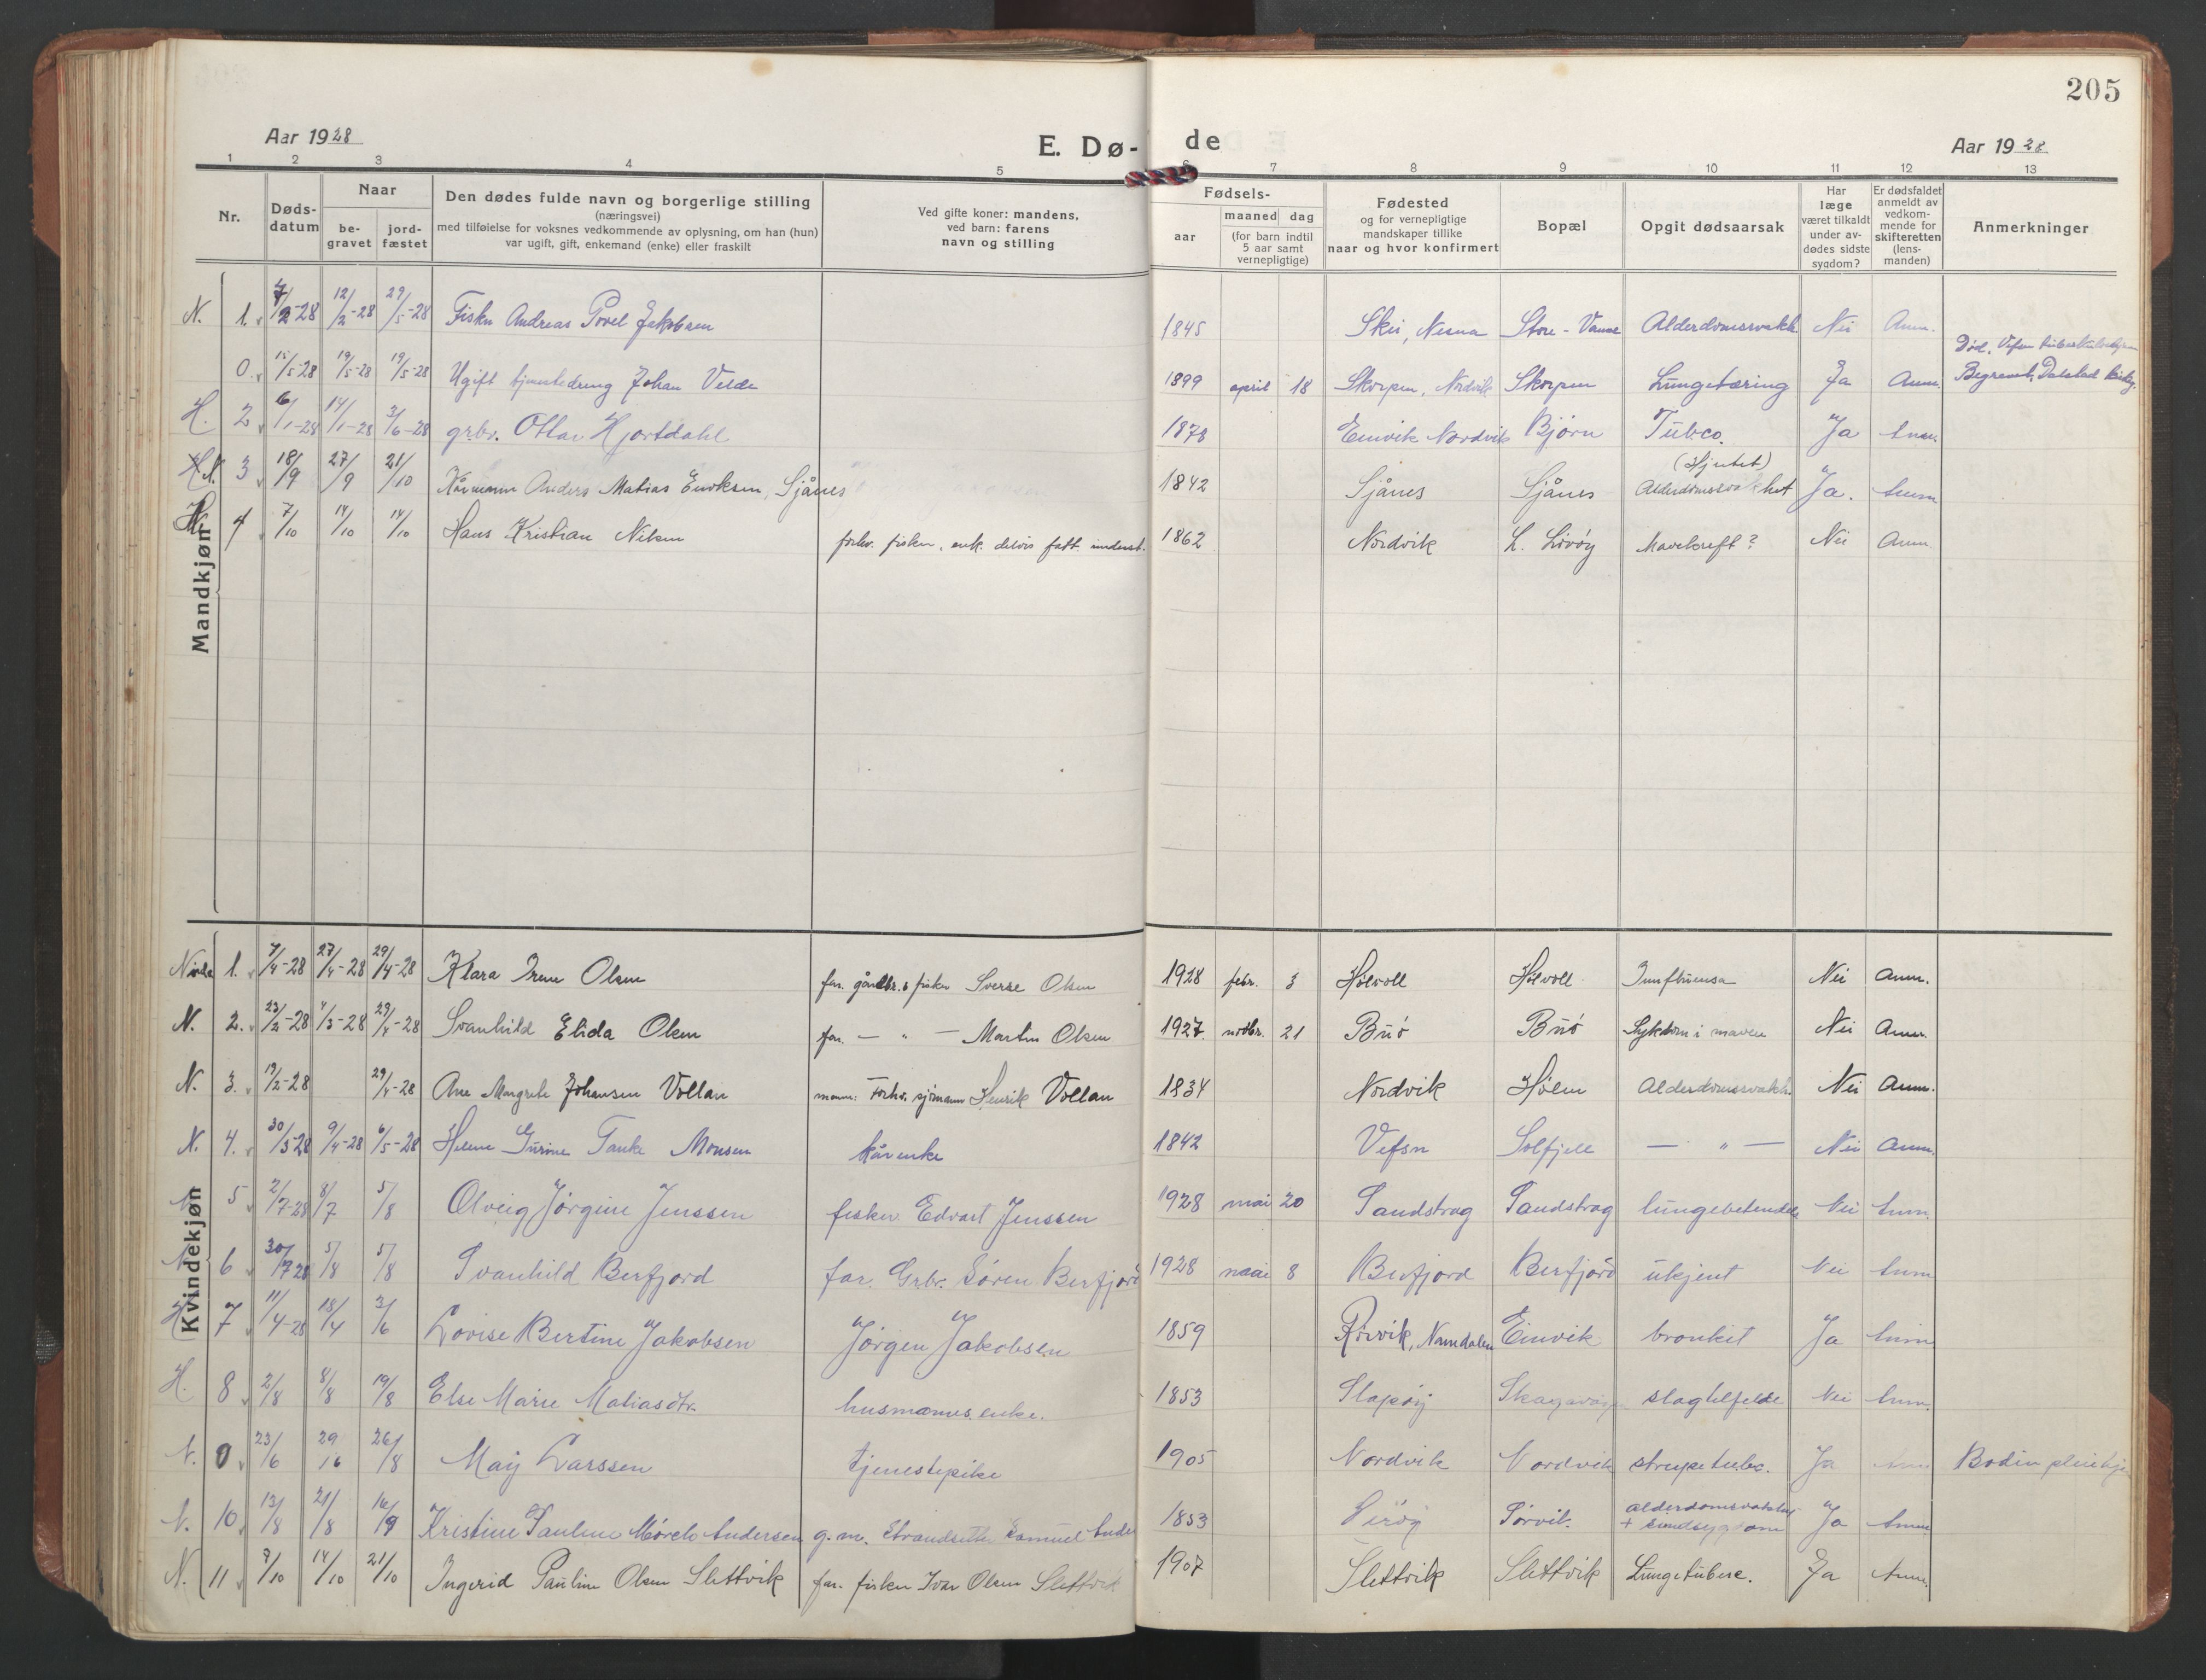 205
Aar 1928
E. Dø-
de
Aar 1928
1 2 3 4 5 6 7 8 9 10 11 12 13
Nr.
Døds-
datum
Naar
be-
gravet
jord-
fæstet
Den dødes fulde navn og borgerlige stilling
(næringsvei)
med tilføielse for voksnes vedkommende av oplysning, om han (hun)
var ugift, gift, enkemand (enke) eller fraskilt
Ved gifte koner: mandens,
ved barn: farens
navn og stilling
Fødsels-
aar
maaned dag
(for barn indtil
5 aar samt
vernepligtige)
Fødested
og for vernepligtige
mandskaper tillike
naar og hvor konfirmert
Bopæl
Opgit dødsaarsak
Har
læge
været tilkaldt
under av-
dødes sidste
sygdom?
Er dødsfaldet
anmeldt av
vedkom-
mende for
skifteretten
(lens-
manden)
Anmerkninger
Mandkjøn
N. 1. 12/2-28 29/5-28 Fisker Andreas Povel Jakobsen 1845 Nesna Store- Alderdomssvakh. Nei Anm.
0 15/5-28 19/5-28 19/5-28 Ugift tjenestedreng Johan Velde 1899 april 18 Skorpen, Nordvik Skorpen Lungetæring Ja Anm. Død, Vefsn
Begravet, Dalstad
H. 2 6/1-28 14/1-28 3/6-28 grbr. Ottar Hjortdahl 1878 Einvik Nordvik Bjørn Tubco. Ja Anm.
N. 3 18/9 27/9 21/10 Kårmann Anders Matias Eriksen, Sjånes 1842 Sjånes Sjånes (Hjertet)
Alderdomssvakhet Ja. Anm
N. 4 7/10 14/10 14/10 Hans Kristian Nilsen forhv. fisker, enk. delvis fatt. underst. 1862 Nordvik L. Livöy Mavekreft? Nei Anm
Kvindekjøn
1. 7/4-28 27/4-28 29/4-28 Klara Irene Olsen far. gårdbr. & fisker Sverre Olsen 1928 febr. 3 Hølvoll Hølvoll Influensa Nei Anm.
N. 2. 23/2-28 4/3-28 29/4-28 Svanhild Elida Olsen far. — " — Martin Olsen 1927. novbr. 21 Buö Buö Sykdom i maven Nei Anm.
N. 3. 19/2-28 29/4-28 Ane Margrete Johansen Vollan mann: Forhv. sjömann Henrik Vollan 1834 Nordvik Hølen Alderdomssvakh. Nei Anm.
N. 4. 30/3-28 9/4-28 6/5-28 Helene Gurine Tanke Monsen kårenke 1842 Vefsn Solfjell — " — Nei Anm.
N. 5 2/7-28 8/7 5/8 Olveig Jørgine Jenssen fisker Edvart Jenssen 1928 mai 20 Sandstrag Sandstrag lungebetendelse Nei Anm.
N 6 30/7 28 5/8 5/8 Svanhild Berfjord far. Grbr. Søren Berfjord 1928 mai 8 Berfjord Berfjord ukjent Nei Anm
H 7 11/4-28 18/4 3/6 Lovise Bertine Jakobsen Jørgen Jakobsen 1859 Rørvik, Namdalen Einvik bronkit Ja Anm
H. 8 2/8 8/8 19/8 Else Marie Matiasdtr. husmanns enke. 1853 Slapøy slagtilfelde Nei Anm.
N. 0 23/6 29/6 26/8 Maij Larssen tjenestepike 1905 Nordvik Nordvik strupetuberc. Ja Bodin pleiehj
N. 10 13/8 21/8 16/9 Kristine Pauline Mørch Andersen g. m. Strandsitter Samuel Ande 1853 Sørvik. alderdomssvakhet
+ sindsygdom Ja Anm
N. 11 9/10 14/10 21/10 Ingerid Pauline Olsen Slettvik far. fisker Ivar Olsen Slettvik 1907 Slettvik Slettvik Lungetuberc. Ja Anm.